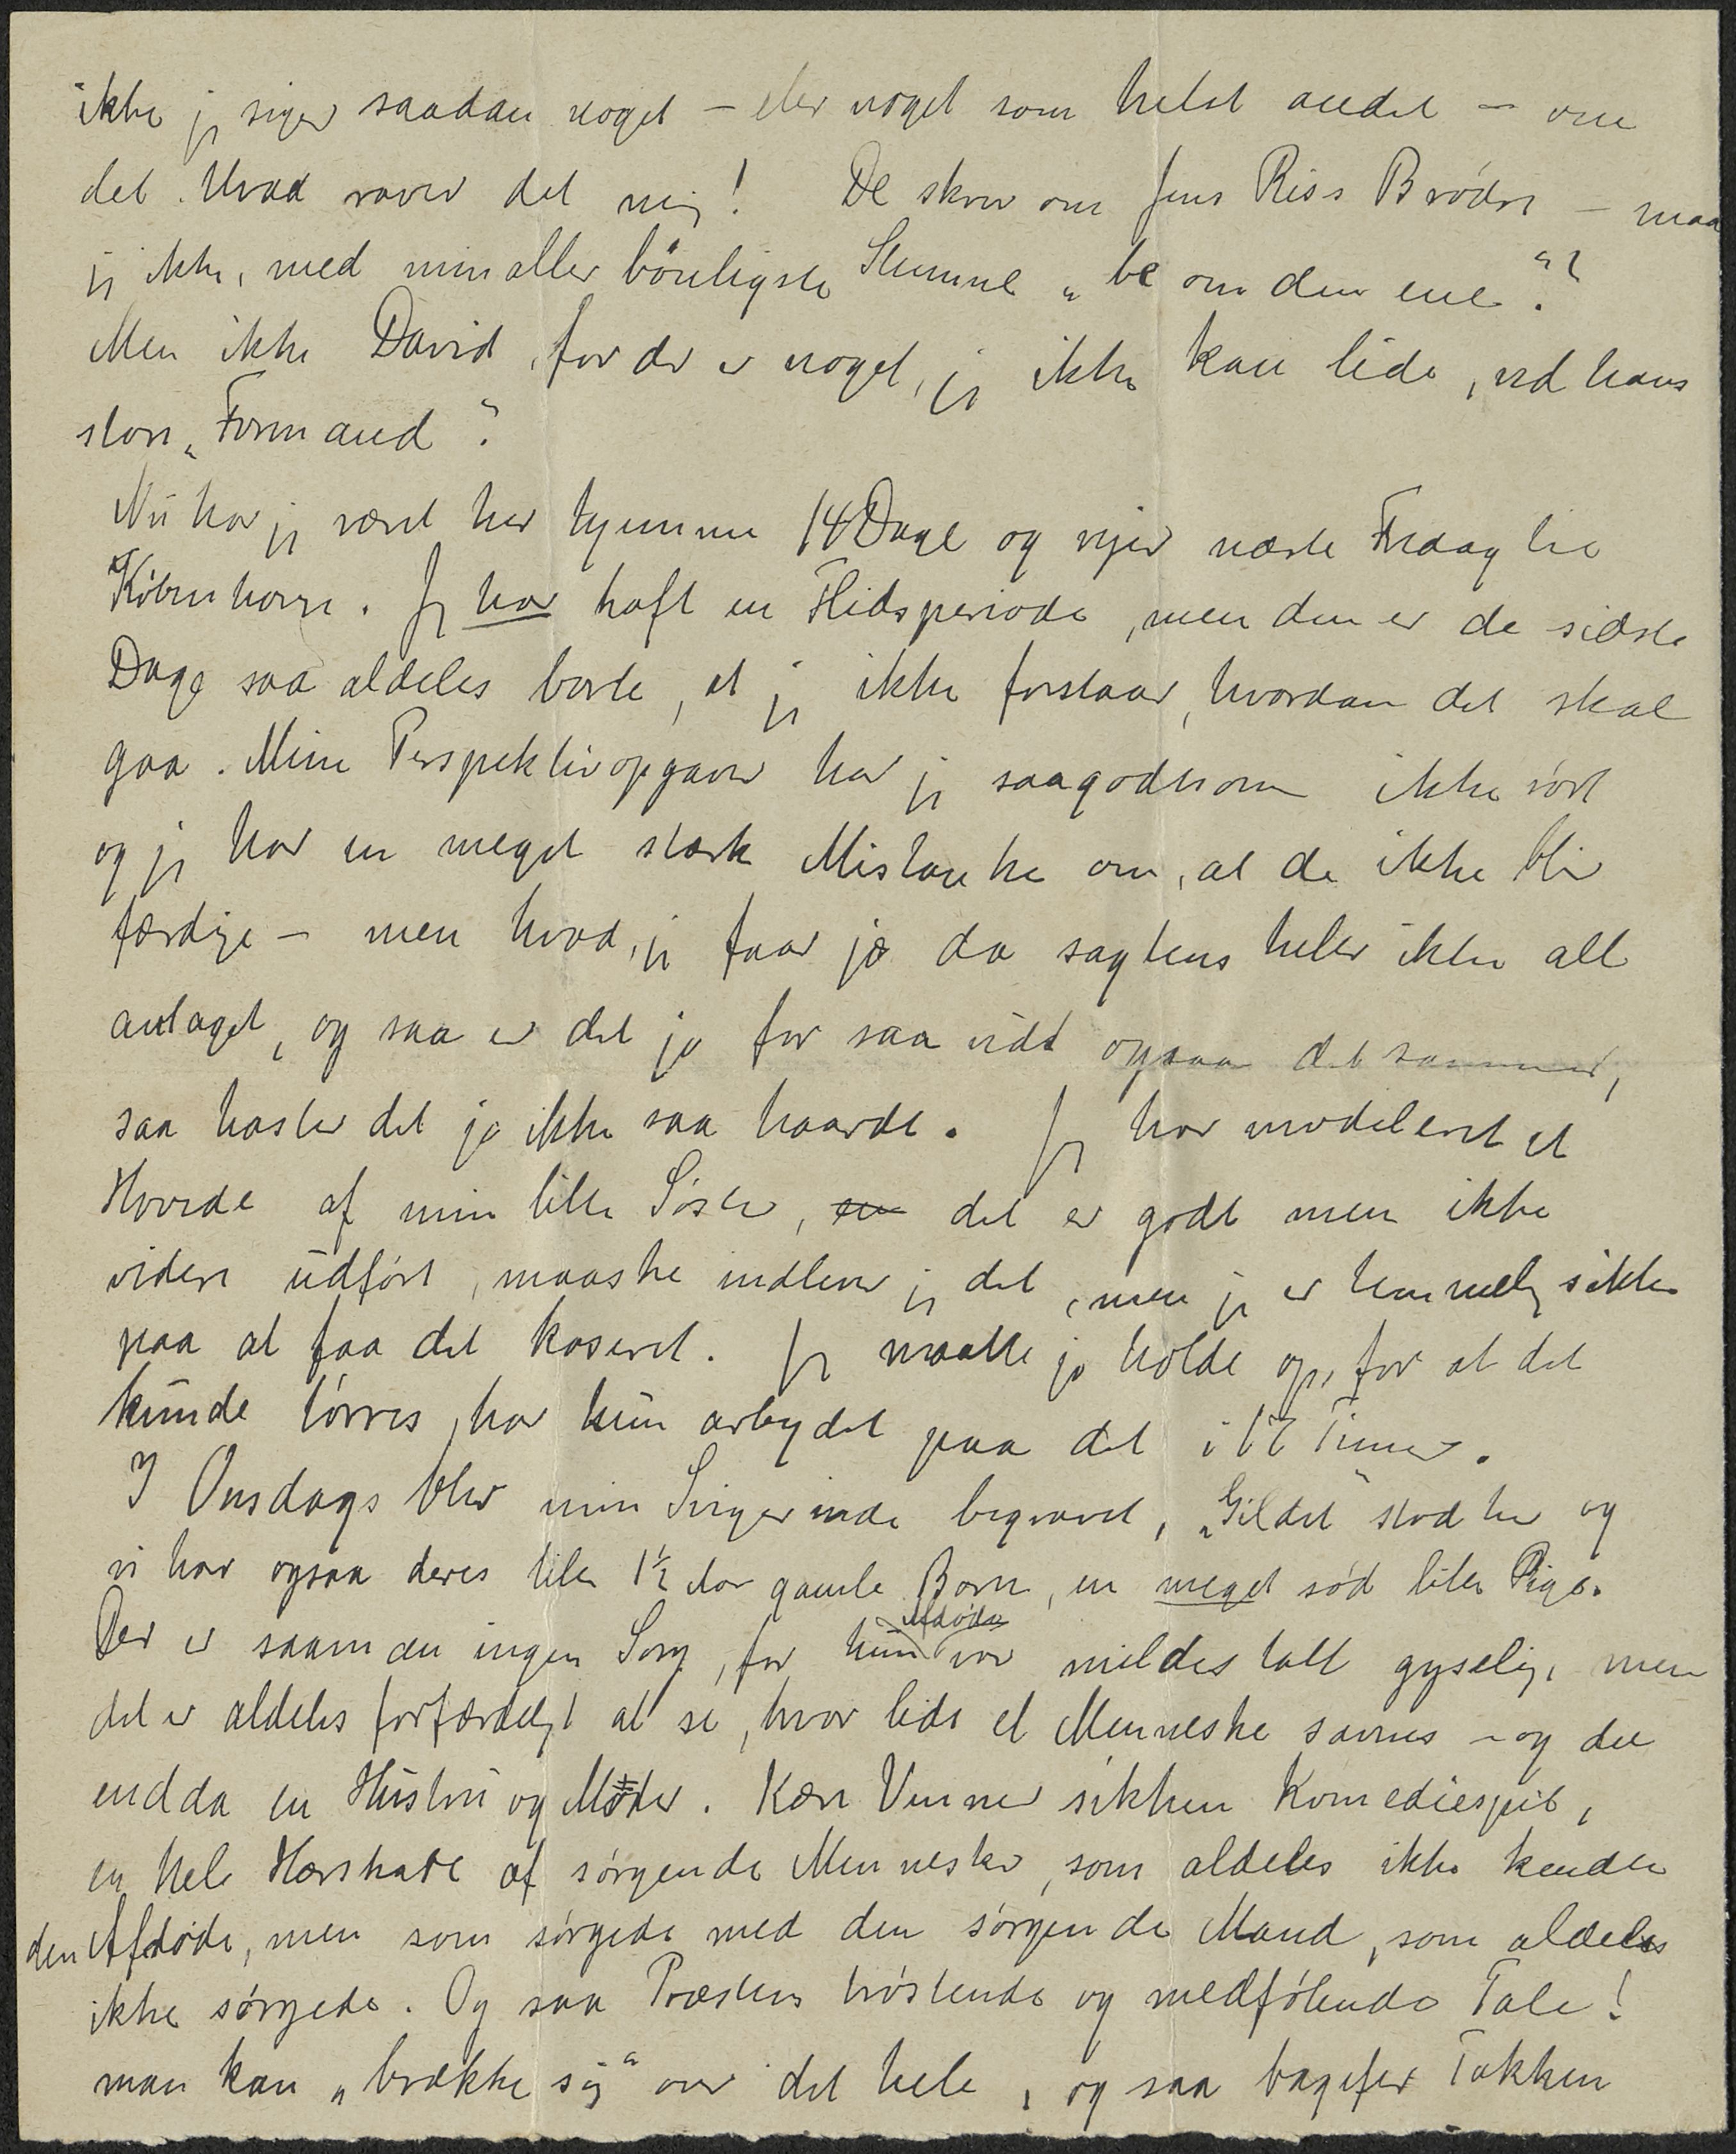 ikke jeg siger saadan noget – eller noget som helst andet – om
det. Hvad raver det mig! De skrev om Jens Riis Brødre – maa
jeg ikke, med min aller bönligste Stemme „be om den ene“?
Men ikke David, for der er noget, jeg ikke kan lide, ved hans
store „Formand“.
Nu har jeg været her hjemme 14 Dage og rejser næste Fredag til
København. Jeg har haft en Flidsperiode, men den er de sidste
Dage saa aldeles borte, at jeg ikke forstaar, hvordan det skal
gaa. Mine Perspektivopgaver har jeg saagodtsom ikke rört
og jeg har en meget stærk Mistanke om, at de ikke bliver
færdige – men hvad, jeg faar jo da sagtens heller ikke alt
antaget, og saa er det jo for saa vidt ogsaa det samme,
saa haster det jo ikke saa haardt. Jeg har modeleret et
Hovede af min lille Søster, en det er godt men ikke
videre udfört, maaske indlever jeg det, men jeg er temmelig sikker
paa at faa det kaseret. Jeg maatte jo holde op, for at det
kunde törres, har kun arbejdet paa det i 17 Timer.
I Onsdags blev min Svigerinde begravet, „Gildet“ stod her og
vi har ogsaa deres lille 1½ Aar gamle Barn, en meget sød lille Pige.
Der er saamæn ingen Sorg, for hun afdøde var mildest talt gyselig, men
det er aldeles forfærdeligt at se, hvor lidt et Menneske savnes – og det
endda en Hustru og Moder. Kære Venner sikken Komediespil,
en hel Hærskare af sørgende Mennesker, som aldeles ikke kendte
den Afdøde, men som sørgede med den sørgende Mand, som aldeles
ikke sørgede. Og saa Præstens trøstende og medfølende Tale!
man kan „brække sig“ over det hele, og saa bagefter Takken